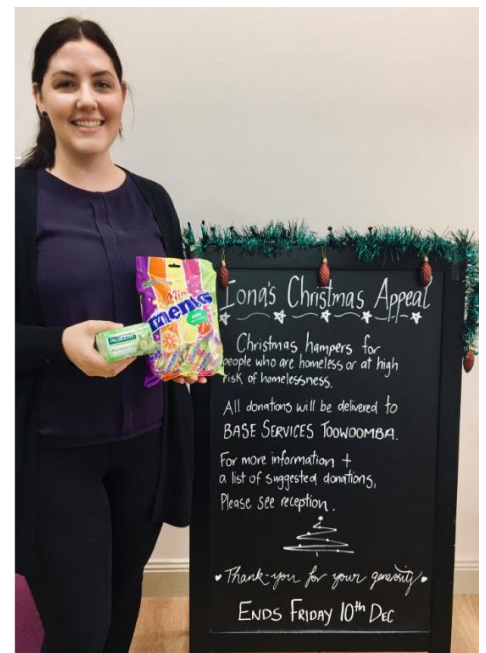 Iona's Christmas Appeal
Christmas hampers for
people who are homeless or at high
risk of homelessness.
All donations will be delivered to
BASE SERVICES TOOWOOMBA.
For more information +
a list of suggested donations,
Please see reception.
Thank-you for your generosity
ENDS FRIDAY 10th DEC
Mini
mentos
PALMOLIVE